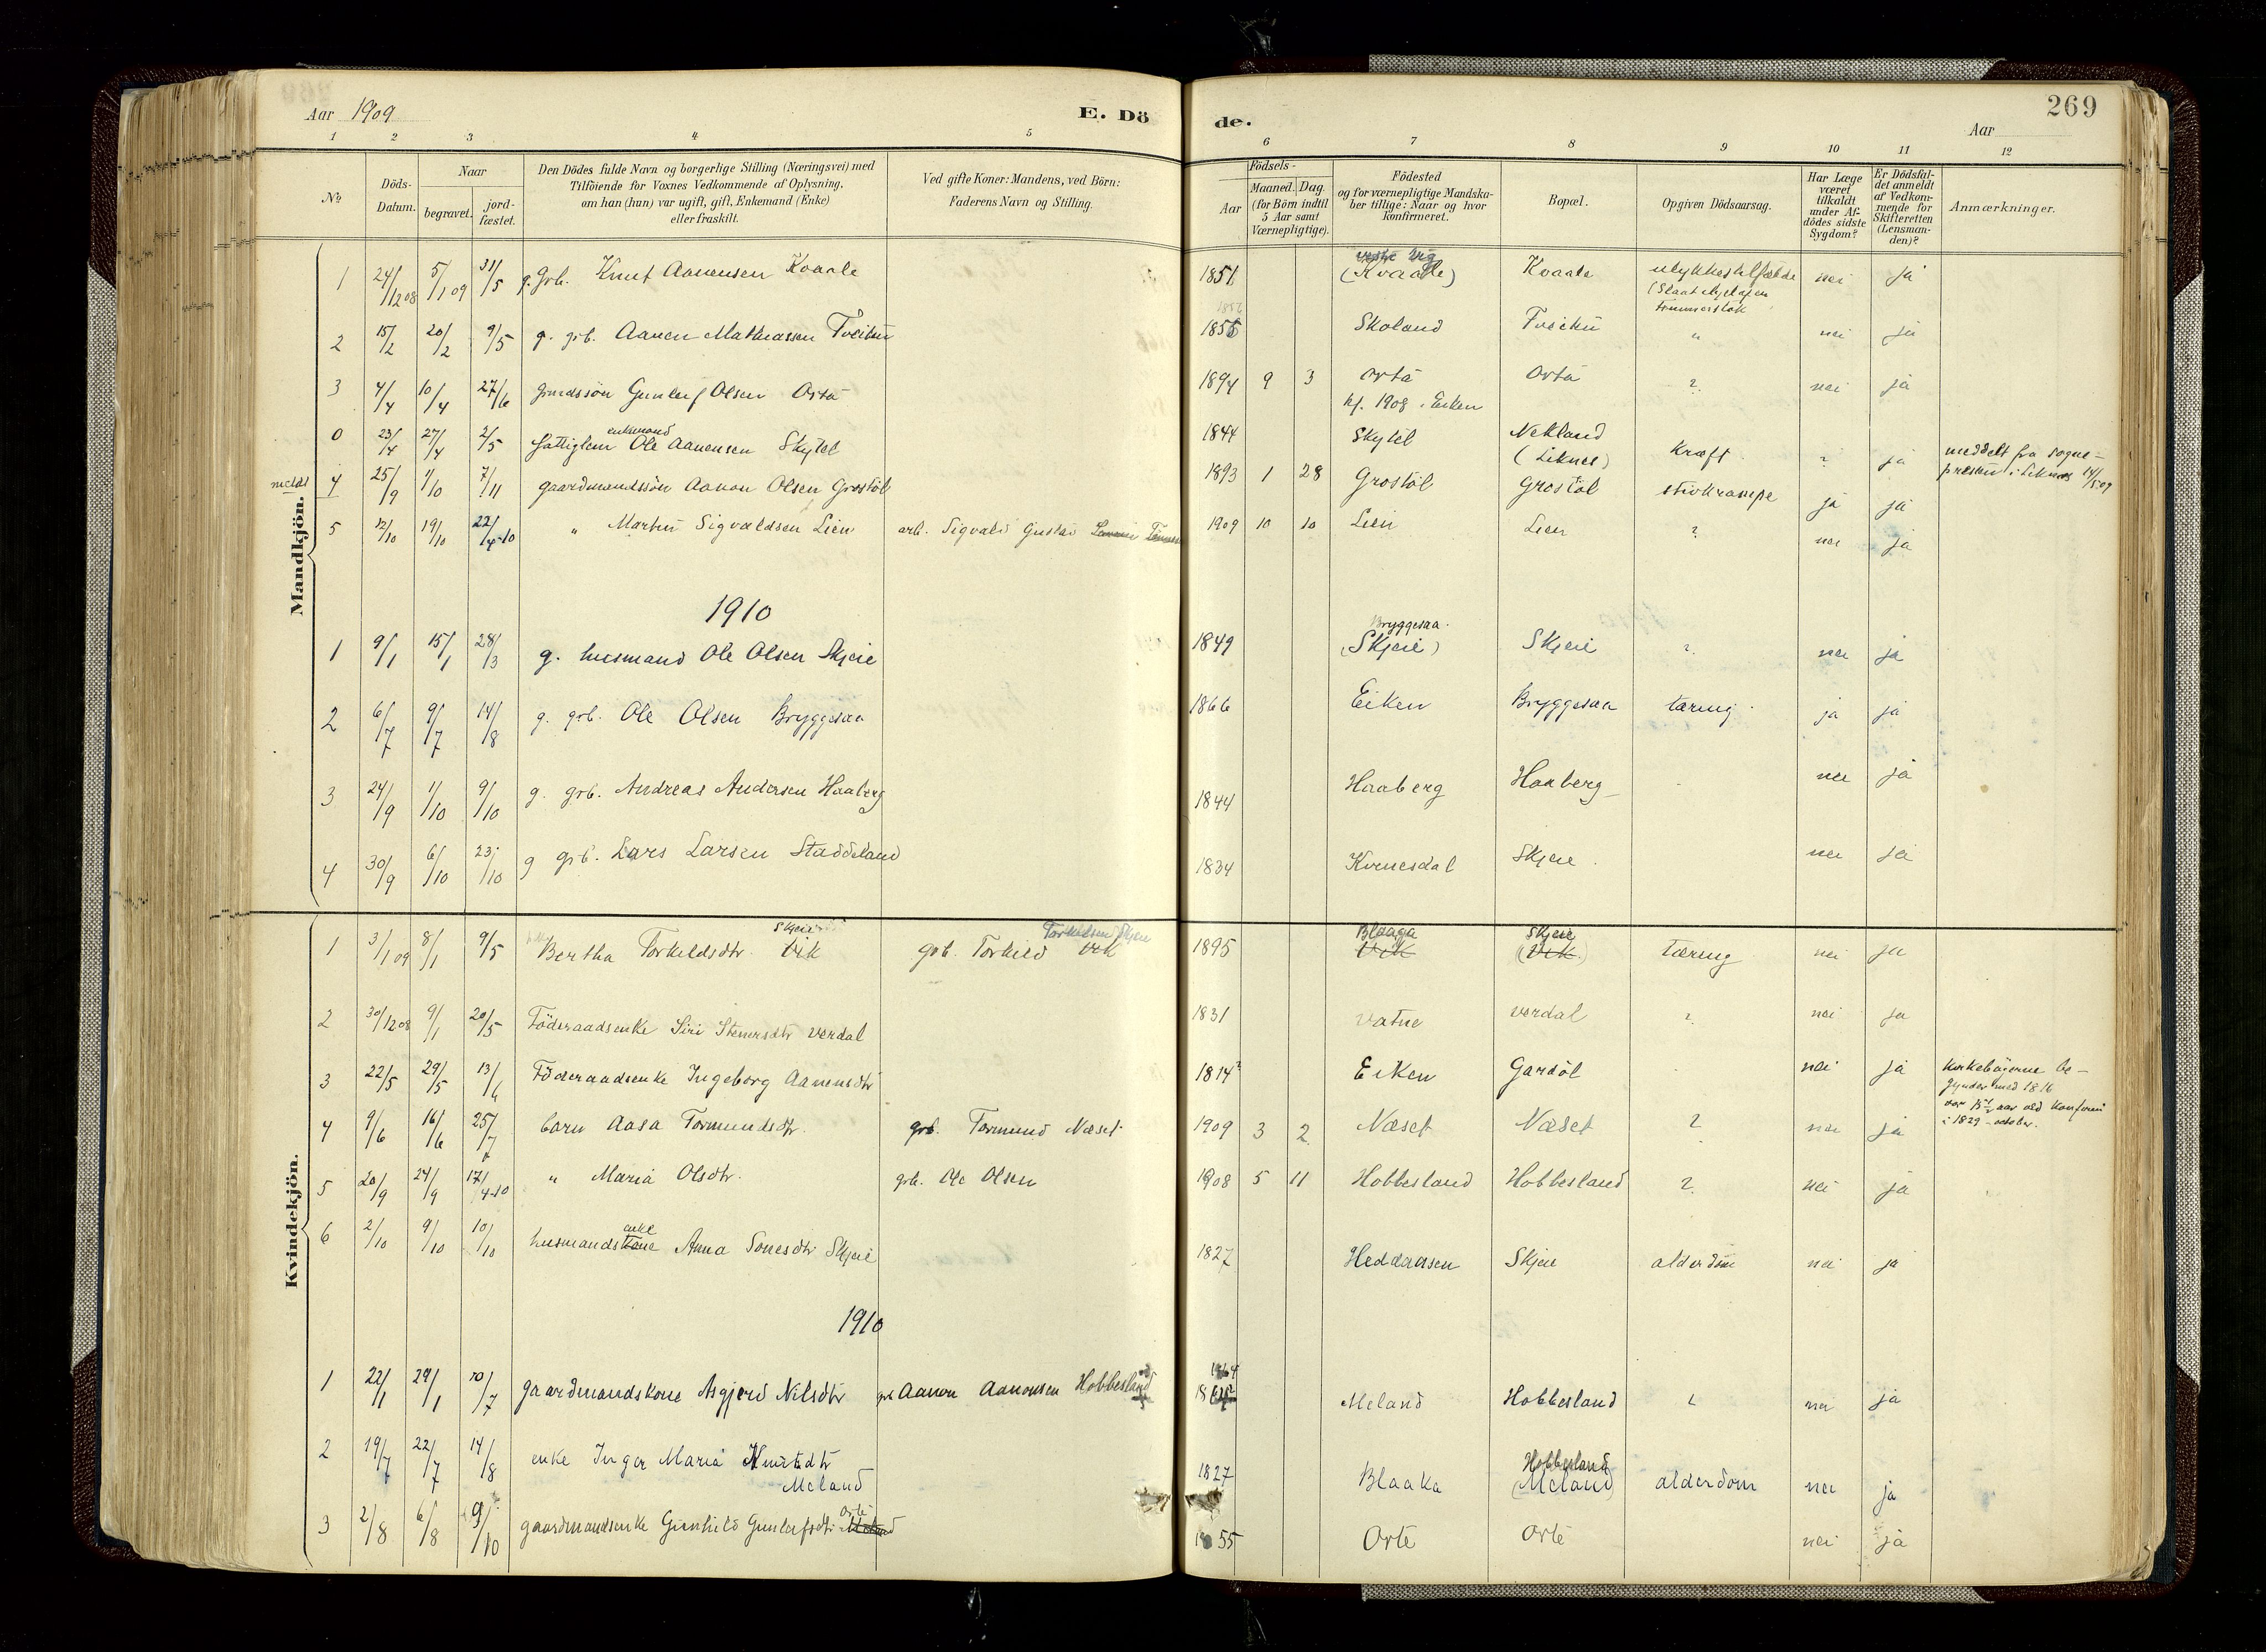 269
Aar 1909
E. Dö
de.
Aar
1 2 3 4 5 6 7 8 9 10 11 12
No.
Döds-
Datum.
Naar
begravet.
jord-
fæstet.
Den Dödes fulde Navn og borgerlige Stilling (Næringsvei) med
Tilföiende for Voxnes Vedkommende af Oplysning,
om han (hun) var ugift, gift, Enkemand (Enke)
eller fraskilt.
Ved gifte Koner: Mandens, ved Börn:
Faderens Navn og Stilling.
Födsels-
Aar
Maaned. Dag.
(for Börn indtil
5 Aar samt
Værnepligtige).
Födested
og for værnepligtige Mandska-
ber tillige: Naar og hvor
konfirmeret.
Bopæl.
Opgiven Dödsaarsag.
Har Læge
været
tilkaldt
under Af-
dödes sidste
Sygdom?
Er Dödsfal-
det anmeldt
af Vedkom-
mende for
Skifteretten
(Lensman-
den)?
Anmærkninger.
Mandkjön.
vestre Vig
1 24/12 08 5/1 09 31/5 g. grb. Knut Aanensen Kvaale 1851 (Kvaale) Kvaale ulykkestilfælde nei ja
(Slaat ihjel af en
tømmerstok
2 15/2 20/2 9/5 g. grb. Aanen Mathiassen 1855 Skoland " nei ja
3 4/4 10/4 27/6 grmdssön Gunluf Olsen Orta 1894 9 3 Orta Orta ? nei ja
kf. 1908 i Eiken
enkemand
0 23/4 27/4 2/5 fattiglem Ole Aanensen Skytel 1844 Skytel Nekland kræft ? ja meddelt fra sogne-
(Liknes) præsten i Liknes 14/5 09
meddt 4 25/9 1/10 7/11 gaardmandssön Aanon Olsen Grostöl 1893 1 28 Grostöl Grostöl stivkrampe ja ja
5 12/10 19/10 22/4-10 " Martin Sigvaldsen Lien arb. Sigvald Gustav 1909 10 10 Lien Lien ? nei ja
1910
Bryggesaa.
1 9/1 15/1 28/3 g. husmand Ole Olsen Skjeie 1849 (Skjeie) Skjeie ? nei ja
2 6/7 9/7 14/8 g. grb. Ole Olsen Bryggesaa 1866 Eiken Bryggesaa tæring ja ja
3 24/9 1/10 9/10 g. grb. Andreas Andersen Haaberg 1844 Haaberg Haaberg - nei ja
4 30/9 6/10 23/10 g grb. Lars Larsen Staddeland 1834 Kvinesdal Skjeie. nei ja
Kvindekjön.
Skjeie Torkildsen Skjeie Blaaga Skjeie
1 3/1 09 8/1 9/5 Bertha Torkeldsdtr. Vik grb. Torkild Vik 1895 Vik (Vik) tæring nei ja
2 30/12 08 9/1 20/5 Föderaadsenke Siri Stenersdtr Verdal 1831 Vatne Verdal ? nei ja
3 22/5 29/5 13/6 Föderaadsenke Ingeborg Aanensdtr 1814? Eiken Gardöl - nei ja kirkebøgerne be-
gynder med 1816
var 15 1/2 aar ved konfirm
i 1829 - october.
4 9/6 16/6 25/7 barn Aasa Tormundsdtr. grb. Tormund Næset 1909 3 2 Næset Næset ? nei ja
5 20/9 24/9 17/4-10 " Maria Olsdtr. grb. Ole Olsen 1908 5 11 Hobbesland Hobbesland ? nei ja
enke
6 2/10 9/10 10/10 husmandskone Anna Tonesdtr Skjeie 1827 Heddansen Skjeie alderdom nei ja
1910
1864
1 22/1 29/1 10/7 gaardmandskone Asgjerd Nilsdtr grb Aanon Aanonsen Hobbesland Meland Hobbesland ? nei ja
Hobbesland
2 19/7 22/7 14/8 enke Inger Maria Knutsdtr 1827 Blaaka (Meland) alderdom nei ja
Meland
Orte
3 2/8 6/8 9/10 gaardmandsenke Gunhild Gunlufsdtr 1855 Orte Orte nei ja